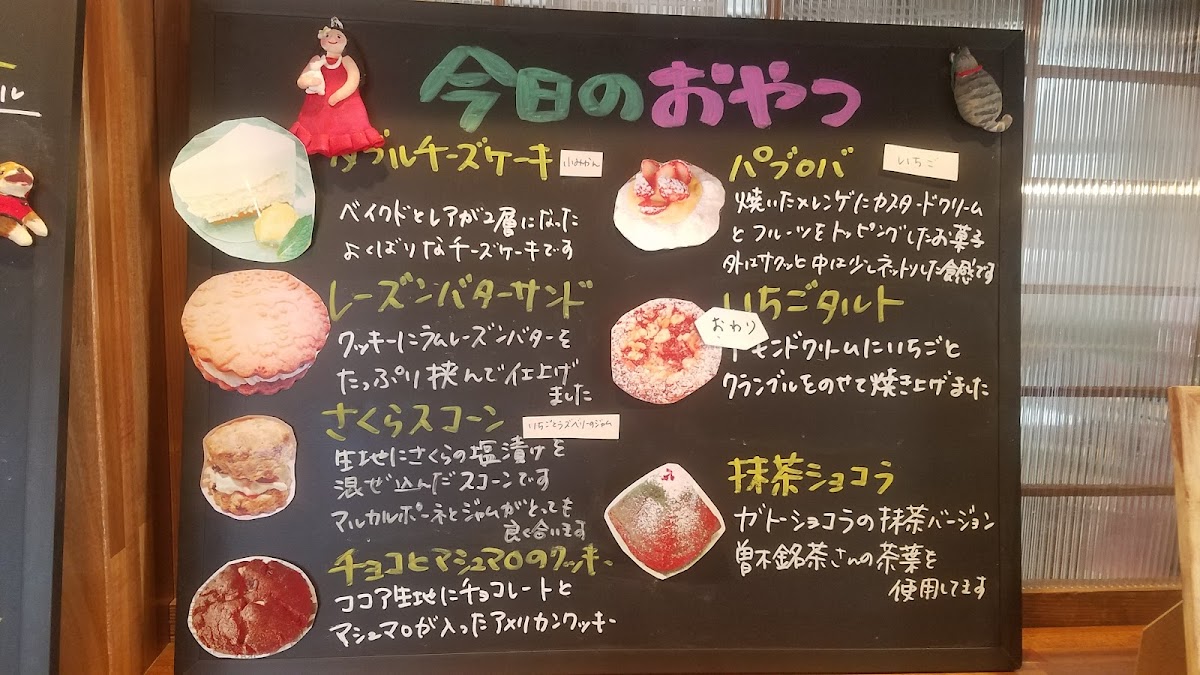 ル
今日のおやつ
ダブルチーズケーキ
小みかん
ベイクドとレアが2層になった
よくばりなチーズケーキです
レーズンバターサンド
クッキーにラムレーズンバターを
たっぷり挟んで仕上げ
ました
さくらスコーン
いちごとラズベリーのジャム
生地にさくらの塩漬けを
混ぜ込んだスコーンです
マルカルポーネとジャムがとっても
良く合います
チョコとマシュマロのクッキー
ココア生地にチョコレートと
マシュマロが入ったアメリカンクッキー
パブロバ
いちご
焼いたメレンゲにカスタードクリーム
とフルーツをトッピングしたお菓子
外はサクッと中は少しネットリした食感です
いちごタルト
おわり
アモンドクリームにいちごと
クランブルをのせて焼き上げました
抹茶ショコラ
ガトーショコラの抹茶バージョン
曽木銘茶さんの茶葉を
使用してます